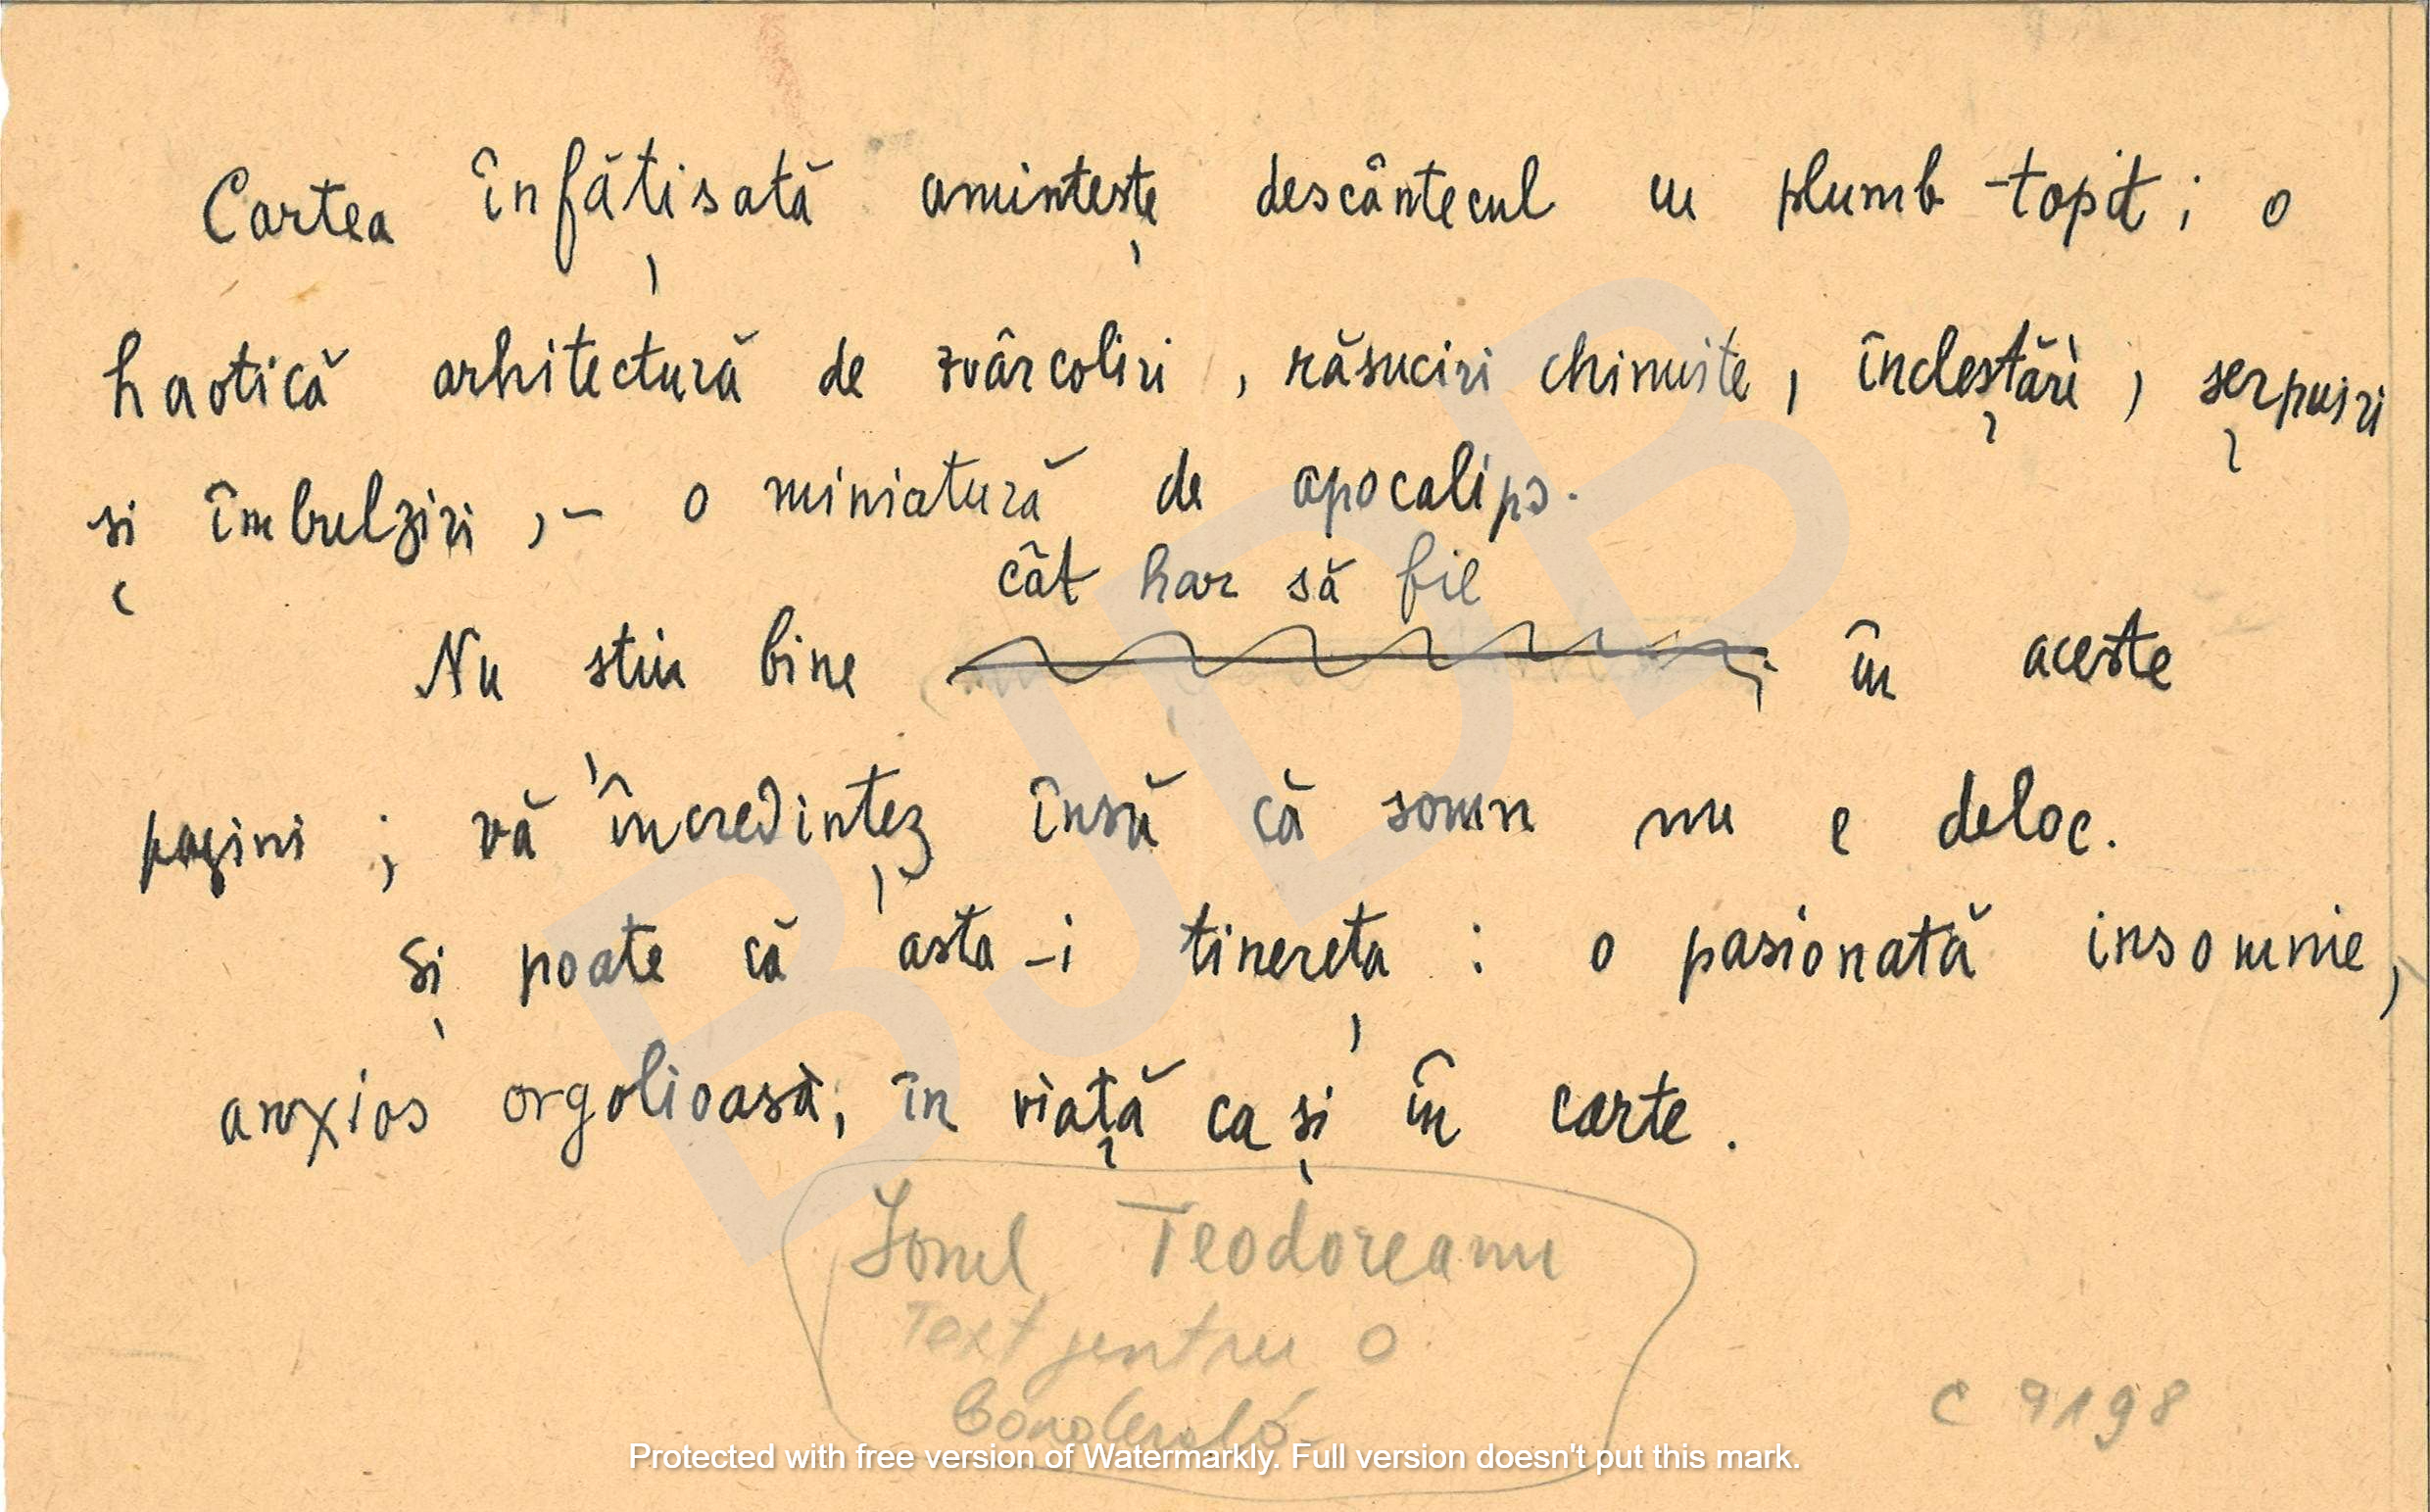 Cartea înfățisată amintește descântecul cu plumb-topit; o
haotică arhitectură de zvârcoliri, răsuciri chinuite, încleștări, șerpuiri
și îmbulziri,- o miniatură de apocalips.
cât har să fie
Nu stiu bine în aceste
pagini; vă încredințez însă că somn nu e deloc.
Și poate că asta-i tinerețea: o pasionată insomnie,
anxios orgolioasă, în viață ca și în carte.
Ionel Teodoreanu
Text pentru o
banderolă
C 9198
BJDB
Protected with free version of Watermarkly. Full version doesn't put this mark.